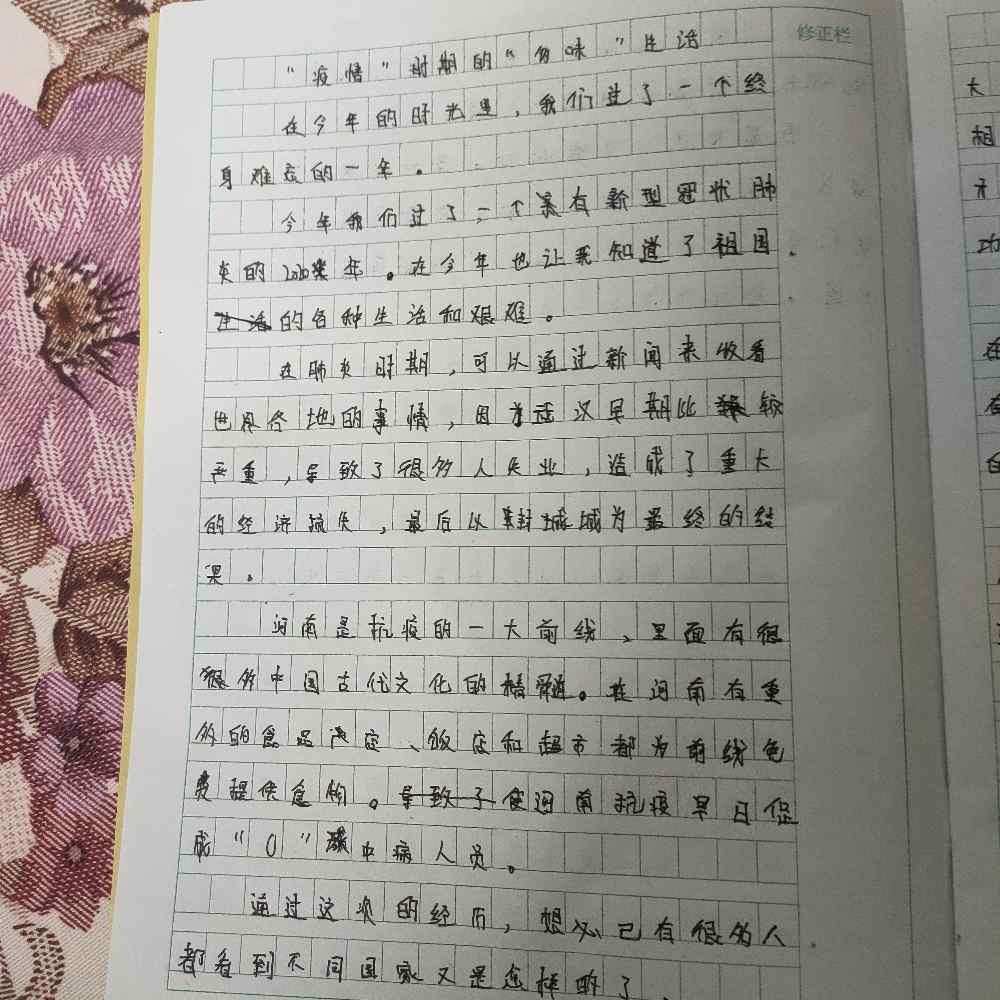 修正栏
“疫情”时期的“多味”生活
在今年的时光里，我们过了一个终
身难忘的一年。
今年我们过了一个带有新型冠状肺
炎的2020年。在今年也让我知道了祖国
的各种生活和艰难。
在肺炎时期，可以通过新闻来收看
世界各地的事情，因为这次早期比较
严重，导致了很多人失业，造成了重大
的经济流失，最后以封城成为最终的结
果。
河南是抗疫的一大前线、里面有很
很多中国古代文化的精髓。在河南有重
多的食品店、饭店和超市都为前线免
费提供食物。使河南抗疫早日促
成“0”中病人员。
通过这次的经历，想必已有很多人
都看到不同国家又是怎样的了。
大
相
在